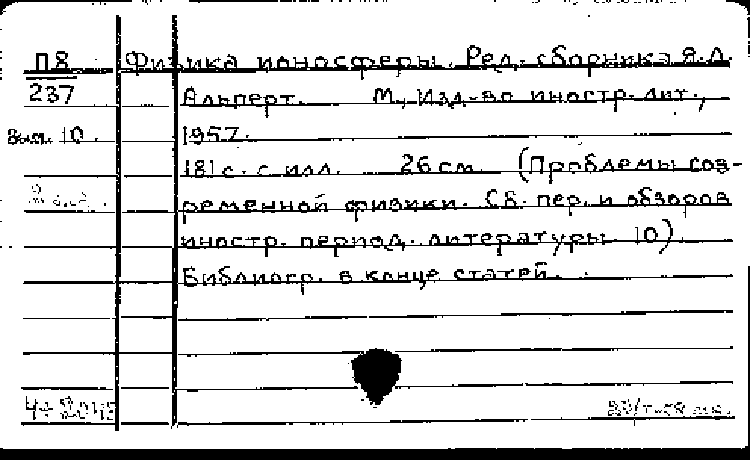 П8 Физика ионосферы. Ред. сборника Я.Л.
237 Альперт. М., Изд-во иностр. лит.,
Вып. 10. 1957.
181 с. с илл. 26 см (Проблемы сов-
ременной физики. Сб. пер. и обзоров
иностр. период. литературы 10).
Библиогр. в конце статей.